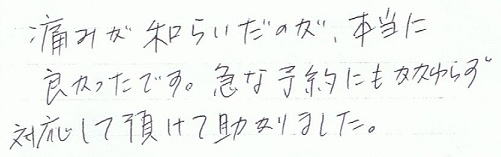 痛みが和らいだのが、本当に
良かったです。急な予約にもかかわらず
対応して頂けて助かりました。